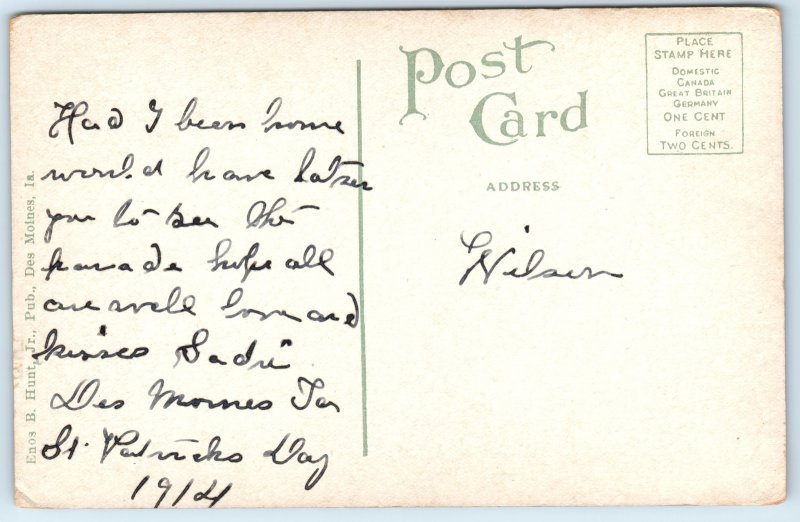 Post
Card
PLACE
STAMP HERE
DOMESTIC
CANADA
GREAT BRITAIN
GERMANY
ONE CENT
FOREIGN
TWO CENTS.
ADDRESS
Had I been home
would have
you to see the
parade hope all
are well love and
kisses Sadie
Des Moines Ia
St. Patricks Day
1914
Wilson
Enos B. Hunt, Jr., Pub., Des Moines, Ia.